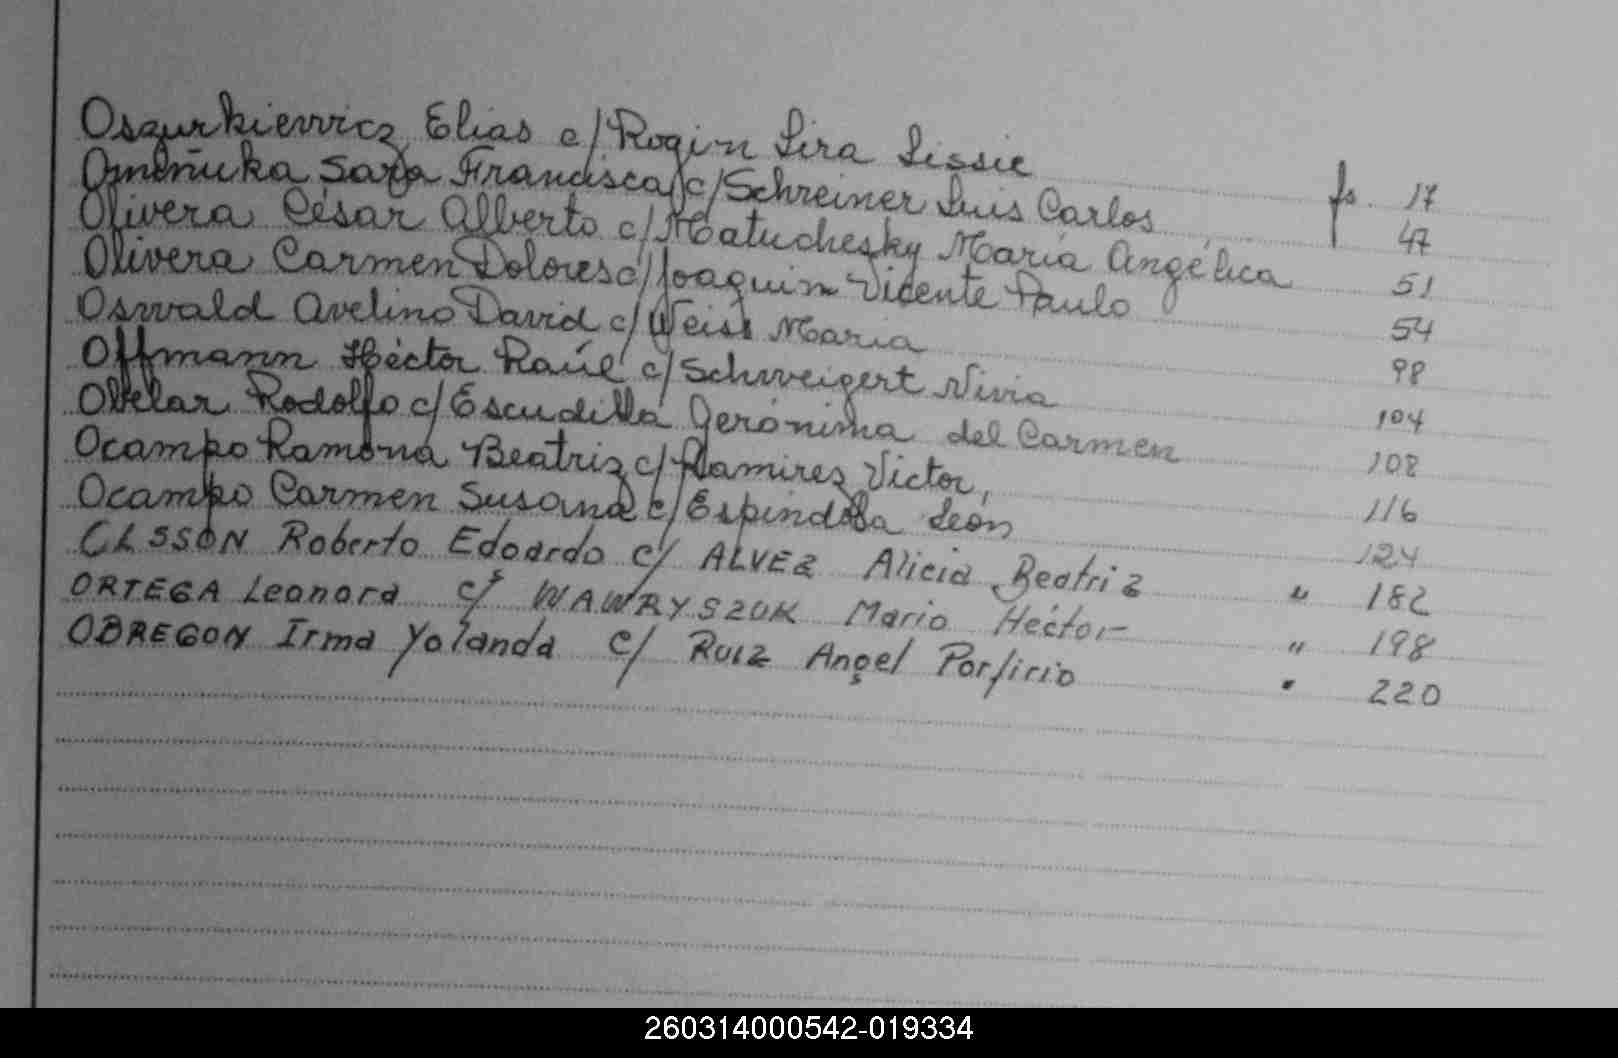 Oszurkievvicz Elias c/ Rogin Lira Lissie fs. 17
Omeñuka Sara Francisca c/ Schreiner Luis Carlos 47
Olivera César Alberto c/ Matuchesky María Angélica 51
Olivera Carmen Dolores c/ Joaquim Vicente Paulo 54
Osvvald Avelino David c/ Weiss Maria 98
Offmann Héctor Raúl c/ Schvveigert Nivia 104
Obelar Rodolfo c/ Escudilla Gerónima del Carmen 108
Ocampo Ramona Beatriz c/ Ramirez Victor, 116
Ocampo Carmen Susana c/ Espindola León 124
CLSSON Roberto Edoardo c/ ALVEZ Alicia Beatriz " 182
ORTEGA Leonora c/ WAWRYSZUK Mario Héctor " 198
OBREGON Irma Yolanda c/ RUIZ Angel Porfirio " 220
260314000542-019334